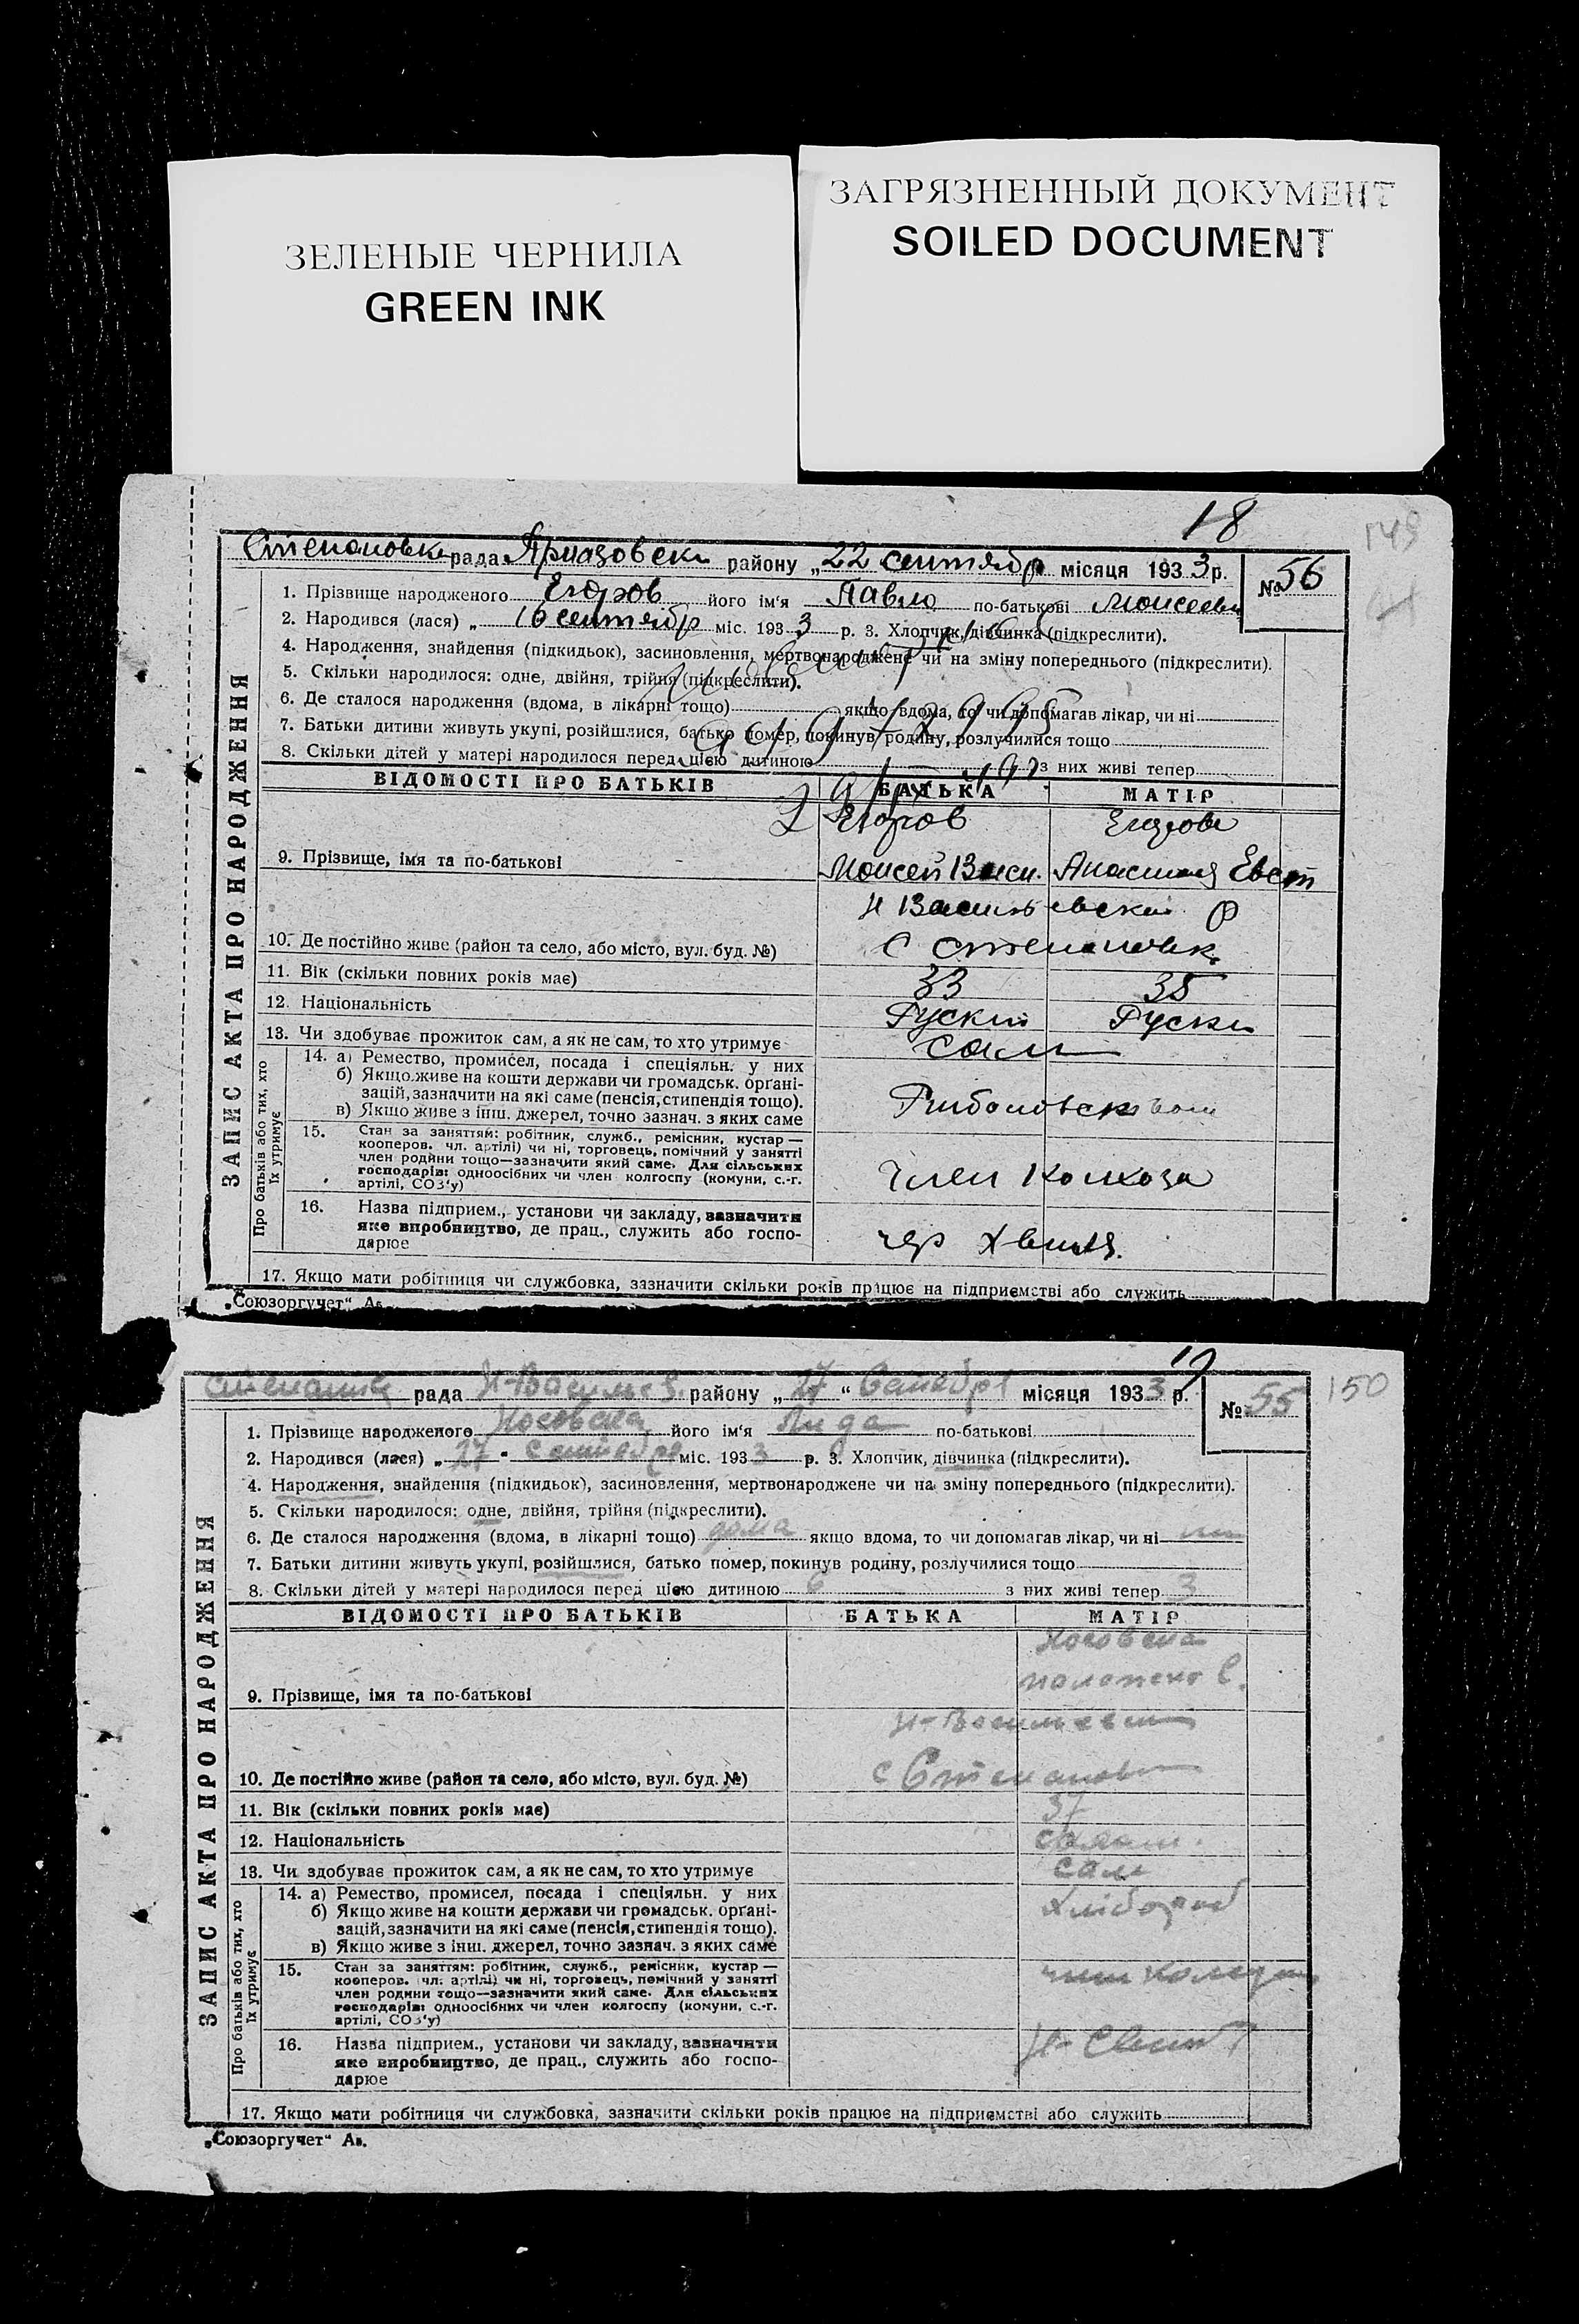 ЗЕЛЕНЫЕ ЧЕРНИЛА
GREEN INK
ЗАГРЯЗНЕННЫЙ ДОКУМЕНТ
SOILED DOCUMENT
18
149
рада района „22 сентября місяця 1933 р.
№ 56
ЗАПИС АКТА ПРО НАРОДЖЕННЯ
1. Прізвище народженого Егоров його ім'я Павло по-батькові
2. Народився (лася) „ 16 сентябр міс. 1933 р. 3. Хлопчик, дівчинка (підкреслити).
4. Народження, знайдення (підкидьок), засиновлення, мертвонароджене чи на зміну попереднього (підкреслити).
5. Скільки народилося: одне, двійня, трійня (підкреслити).
6. Де сталося народження (вдома, в лікарні тощо) якщо вдома, то чи допомагав лікар, чи ні
7. Батьки дитини живуть укупі, розійшлися, батько помер, покинув родину, розлучилися тощо
8. Скільки дітей у матері народилося перед цією дитиною з них живі тепер
ВІДОМОСТІ ПРО БАТЬКІВ БАТЬКА МАТІР
Егоров Егорова
9. Прізвище, імя та по-батькові Моисей Васи. Анастасия Евст
10. Де постійно живе (район та село, або місто, вул. буд. №) с
11. Вік (скільки повних років має) 33 35
12. Національність Руский Руски
13. Чи здобуває прожиток сам, а як не сам, то хто утримує сам
Про батьків або тих, хто їх утримує
14. а) Ремество, промисел, посада і спеціяльн. у них
б) Якщо живе на кошти держави чи громадськ. орґані-
зацій, зазначити на які саме (пенсія, стипендія тощо).
в) Якщо живе з інш. джерел, точно зазнач. з яких саме
15. Стан за заняттям: робітник, служб., ремісник, кустар —
кооперов. чл. артілі) чи ні, торговець, помічний у занятті
член родини тощо—зазначити який саме. Для сільських
господарів: одноосібних чи член колгоспу (комуни, с.-г.
артілі, СОЗ'у)
член колхоза
16. Назва підприєм., установи чи закладу, зазначити
яке виробництво, де прац., служить або госпо-
дарює
17. Якщо мати робітниця чи службовка, зазначити скільки років працює на підприємстві або служить
„Союзоргучет“ Ав.
19
150
рада району „27“ місяця 1933 р.
№ 55
ЗАПИС АКТА ПРО НАРОДЖЕННЯ
1. Прізвище народженого його ім'я Лида по-батькові
2. Народився (лася) „27“ міс. 1933 р. 3. Хлопчик, дівчинка (підкреслити).
4. Народження, знайдення (підкидьок), засиновлення, мертвонароджене чи на зміну попереднього (підкреслити).
5. Скільки народилося: одне, двійня, трійня (підкреслити).
6. Де сталося народження (вдома, в лікарні тощо) дома якщо вдома, то чи допомагав лікар, чи ні
7. Батьки дитини живуть укупі, розійшлися, батько помер, покинув родину, розлучилися тощо
8. Скільки дітей у матері народилося перед цією дитиною 6 з них живі тепер 3
ВІДОМОСТІ ПРО БАТЬКІВ БАТЬКА МАТІР
9. Прізвище, імя та по-батькові
10. Де постійно живе (район та село, або місто, вул. буд. №) с
11. Вік (скільки повних років має) 37
12. Національність
13. Чи здобуває прожиток сам, а як не сам, то хто утримує сам
Про батьків або тих, хто їх утримує
14. а) Ремество, промисел, посада і спеціяльн. у них Хлібороб
б) Якщо живе на кошти держави чи громадськ. орґані-
зацій, зазначити на які саме (пенсія, стипендія тощо).
в) Якщо живе з інш. джерел, точно зазнач. з яких саме
15. Стан за заняттям: робітник, служб., ремісник, кустар —
кооперов. чл. артілі) чи ні, торговець, помічний у занятті
член родини тощо—зазначити який саме. Для сільських
господарів: одноосібних чи член колгоспу (комуни, с.-г.
артілі, СОЗ'у)
16. Назва підприєм., установи чи закладу, зазначити
яке виробництво, де прац., служить або госпо-
дарює
17. Якщо мати робітниця чи службовка, зазначити скільки років працює на підприємстві або служить
„Союзоргучет“ Ав.